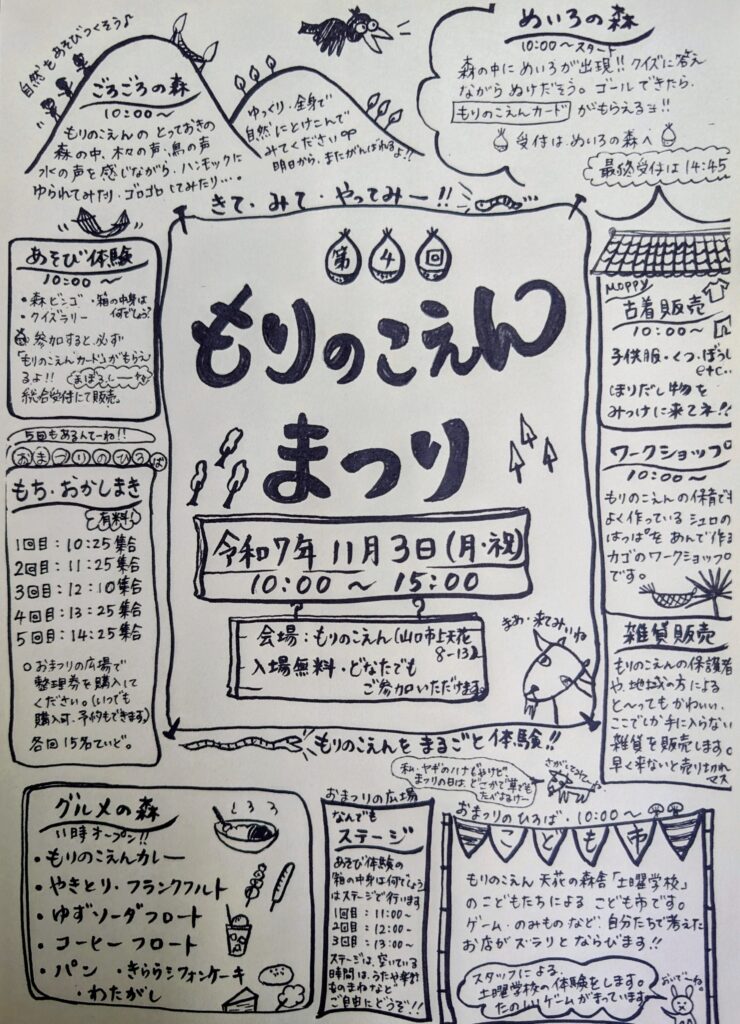 自然をあそびつくそう♪
ごろごろの森
10:00〜
もりのこえんの とっておきの
森の中、木々の声、鳥の声
水の声を感じながら、ハンモックに
ゆられてみたり、ゴロゴロしてみたり・・・。
ゆっくり・全身で
自然にとけこんで
みてください
明日から、またがんばれるよ!!
めいろの森
10:00〜スタート
森の中にめいろが出現!! クイズに答え
ながらぬけだそう。ゴールできたら、
もりのこえんカード がもらえるヨ!!
受付はめいろの森へ
最終受付は14:45
きて・みて・やってみー!!
あそび体験
10:00〜
・森ビンゴ ・箱の中身は
何でしょう?
・クイズラリー
参加すると必ず
「もりのこえんカード」がもらえ
るよ!!
総合受付にて販売。
第4回
もりのこえん
まつり
令和7年 11月3日(月・祝)
10:00 〜 15:00
会場:もりのこえん(山口市上天花
入場無料・どなたでも
ご参加いただけます。
まあ・来てみいね
もりのこえんを まるごと体験!!
MOPPY
古着販売
10:00〜
子供服・くつ・ぼうし
etc..
ほりだし物を
みっけに来てネ!!
ワークショップ
10:00〜
もりのこえんの保育でも
よく作っているシュロの
はっぱをあんで作る
カゴのワークショップ
です。
雑貨販売
もりのこえんの保護者
や、地域の方による
と〜ってもかわいい、
ここでしか手に入らない
雑貨を販売します。
早く来ないと売り切れ
マス
5回もあるんてーね!!
おまつりのひろば
もち・おかしまき
有料
1回目:10:25集合
2回目:11:25集合
3回目:12:10集合
4回目:13:25集合
5回目:14:25集合
○おまつりの広場で
整理券を購入して
ください。(いつでも
購入可、予約もできます)
各回15名ていど。
グルメの森
11時オープン!!
・もりのこえんカレー
・やきとり・フランクフルト
・ゆずソーダフロート
・コーヒーフロート
・パン ・きららシフォンケーキ
・わたがし
おまつりの広場
なんでも
ステージ
あそび体験の
箱の中身は何でしょう
はステージで行います
1回目:11:00〜
2回目:12:00〜
3回目:13:00〜
ステージは、空いている
時間は、うたや楽器
ものまねなど
ご自由にどうぞ!!
私・ヤギのハナもやけど
まつりの日は、どこかで草でも
たべよるけー
さがしてみてーよ
おまつりのひろば・10:00〜
こども市
もりのこえん 天花の森舎「土曜学校」
のこどもたちによる こども市です。
ゲーム・のみものなど、自分たちで考えた
お店がズラリとならびます!!
スタッフによる、
土曜学校の体験をします。
たのしいゲームがまっています
おいでーね。